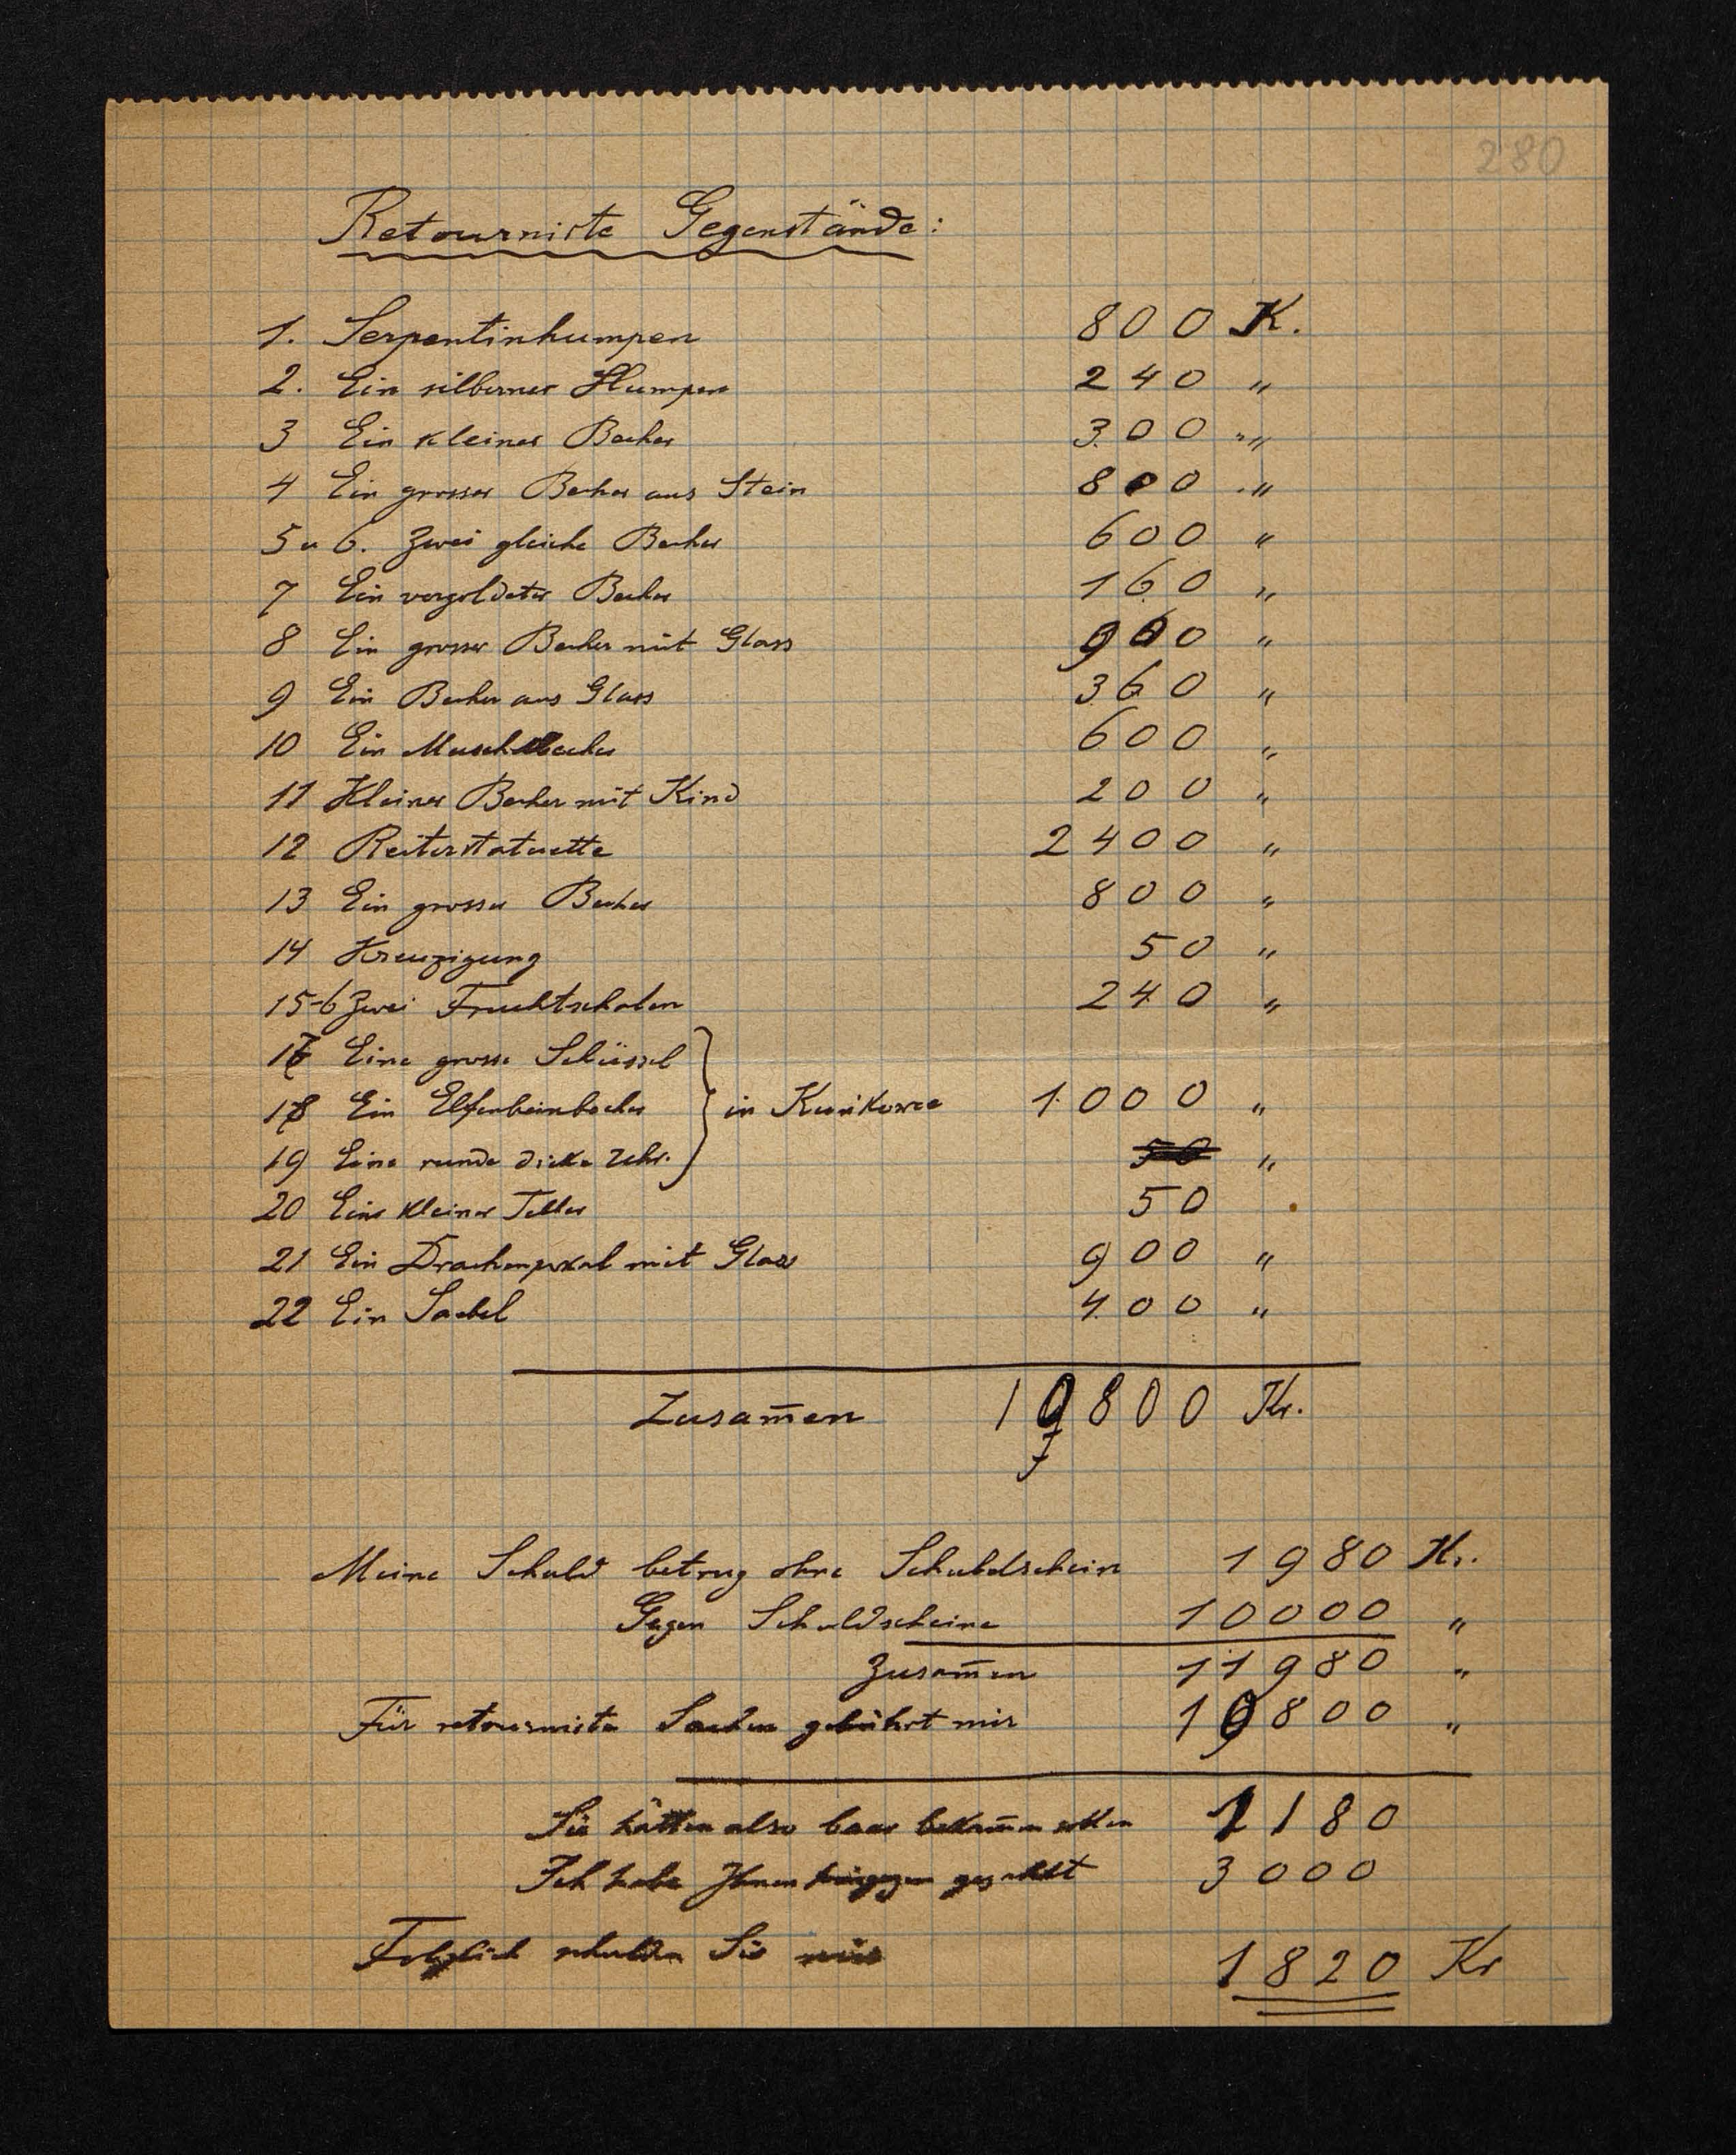 280
Retournirte Gegenstände:
1. Serpentinhumpen 800 K.
2. Ein silberner Humpen 240 "
3 Ein kleiner Becher 300 "
4 Ein grosser Becher aus Stein 800 "
5 u 6. Zwei gleiche Becher 600 "
7 Ein vergoldeter Becher 160 "
8 Ein grosser Becher mit Glass 900 "
9 Ein Becher aus Glass 360 "
10 Ein Muschelbecher 600 "
11 Kleiner Becher mit Kind 200 "
12 Reiterstatuette 2400 "
13 Ein grosser Becher 800 "
14 Kreuzigung 50 "
15-6 Zwei Fruchtschalen 240 "
17 Eine grosse Schüssel
18 Ein Elfenbeinbecher } in Kunikowce 1000 "
19 Eine runde dicke Uhr. 50 "
20 Ein kleiner Teller 50
21 Ein Drachenpokal mit Glass 900 "
22 Ein Saebel 400 "
Zusam̄en 10800 Kr.
Meine Schuld betrug ohne Schuldschein 1980 Kr.
Gegen Schuldscheine 10000 "
Zusam̄en 11980 "
Für retournirte Sachen gebührt mir 10800 "
Sie hätten also baar bekom̄en sollen 1180
Ich habe Ihnen hingegen gezahlt 3000
Folglich schulden Sie mir 1820 Kr